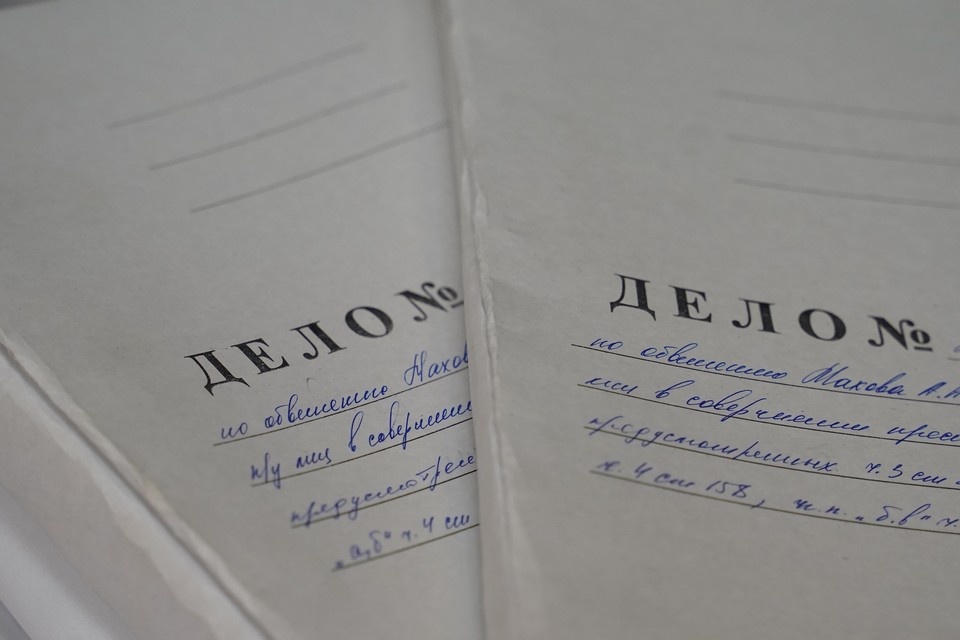 ДЕЛО №
по обвинению Махов
п/у лиц в соверш
предусмотрен
„а,б" ч. 4 ст
ДЕЛО №
по обвинению Махова А.А
лиц в совершении прес
предусмотренных ч. 3 ст
ч. 4 ст 158, п.п. „б,в" ч.